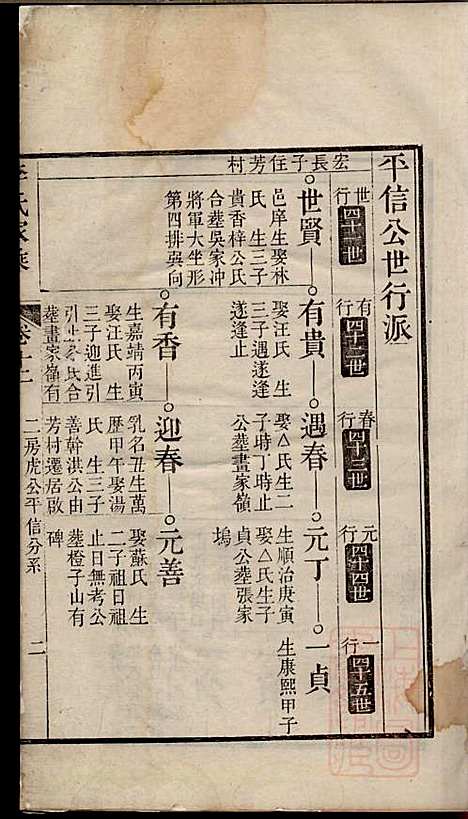 平信公世行派
世行 四十一世
有行 四十二世
春行 四十三世
元行 四十四世
一行 四十五世
宏長子住芳村
世賢
邑庠生娶林
氏 生三子
貴香梓公氏
合葬吳家冲
將軍大坐形
第四排與向
有貴
娶汪氏 生
三子遇遂逢
遂逢止
遇春
娶△氏生二
子時丁時止
公葬畫家嶺
元丁
生順治庚寅
娶△氏生子
貞公葬張家
塢
一貞
生康熙甲子
有香
生嘉靖丙寅
娶汪氏 生
三子迎進引
引止 氏合
葬畫家嶺有
迎春
乳名丑生萬
歷甲午娶湯
氏 生三子
善幹洪公由
芳村遷居啟
元善
娶蘇氏 生
二子祖日祖
止日無考公
葬橙子山有
碑
氏家乘
卷
二房虎公平信分系
二